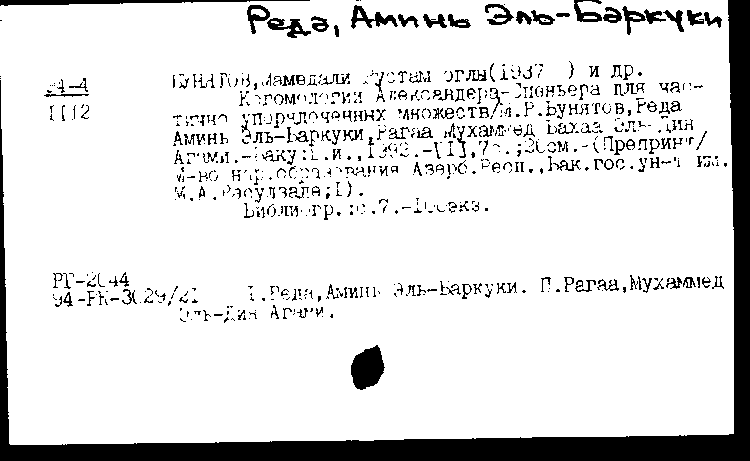 Реда, Аминь Эль-Баркуки
94-4 БУНЯТОВ,Мамедали Рустам оглы(1937 ) и др.
1112 Когомологии Александера-Спеньера для час-
тично упорядоченных множеств/М.Р.Бунятов,Реда
Аминь Эль-Баркуки,Рагаа Мухаммед Бахаа Эль-Дин
Агами.-Баку:Б.и.,1992.-[1],7с.;20см.-(Препринт/
М-во нар.образования Азерб.Респ.,Бак.гос.ун-т им.
М.А.Расулзаде;1).
Библиогр.:с.7.-100экз.
РТ-2044
94-РК-3029/21 I.Реда,Аминь Эль-Баркуки. П.Рагаа,Мухаммед
Эль-Дин Агами.